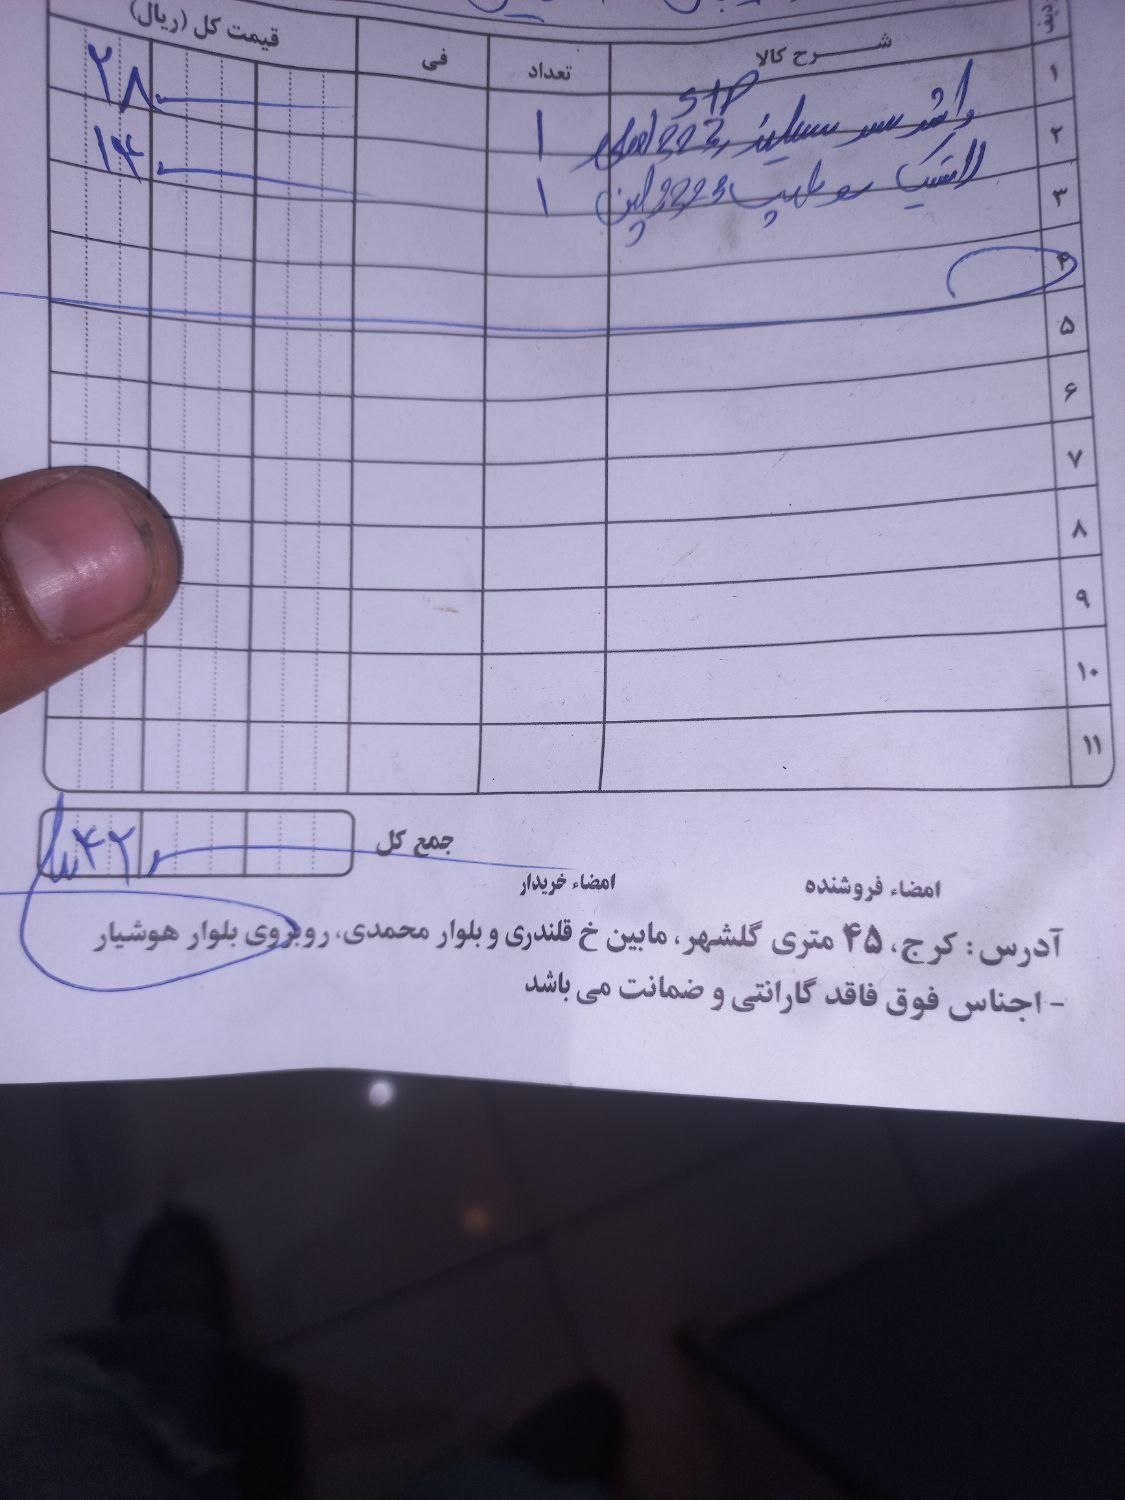 ردیف شرح کالا تعداد فی قیمت کل (ریال)
STP
۱ واشر سر سیلندر ۱ ۲۸
۲ ۱ ۱۴
۳
۴
۵
۶
۷
۸
۹
۱۰
۱۱
جمع کل ۴۲
امضاء فروشنده امضاء خریدار
آدرس: کرج، ۴۵ متری گلشهر، مابین خ قلندری و بلوار محمدی، روبروی بلوار هوشیار
- اجناس فوق فاقد گارانتی و ضمانت می باشد